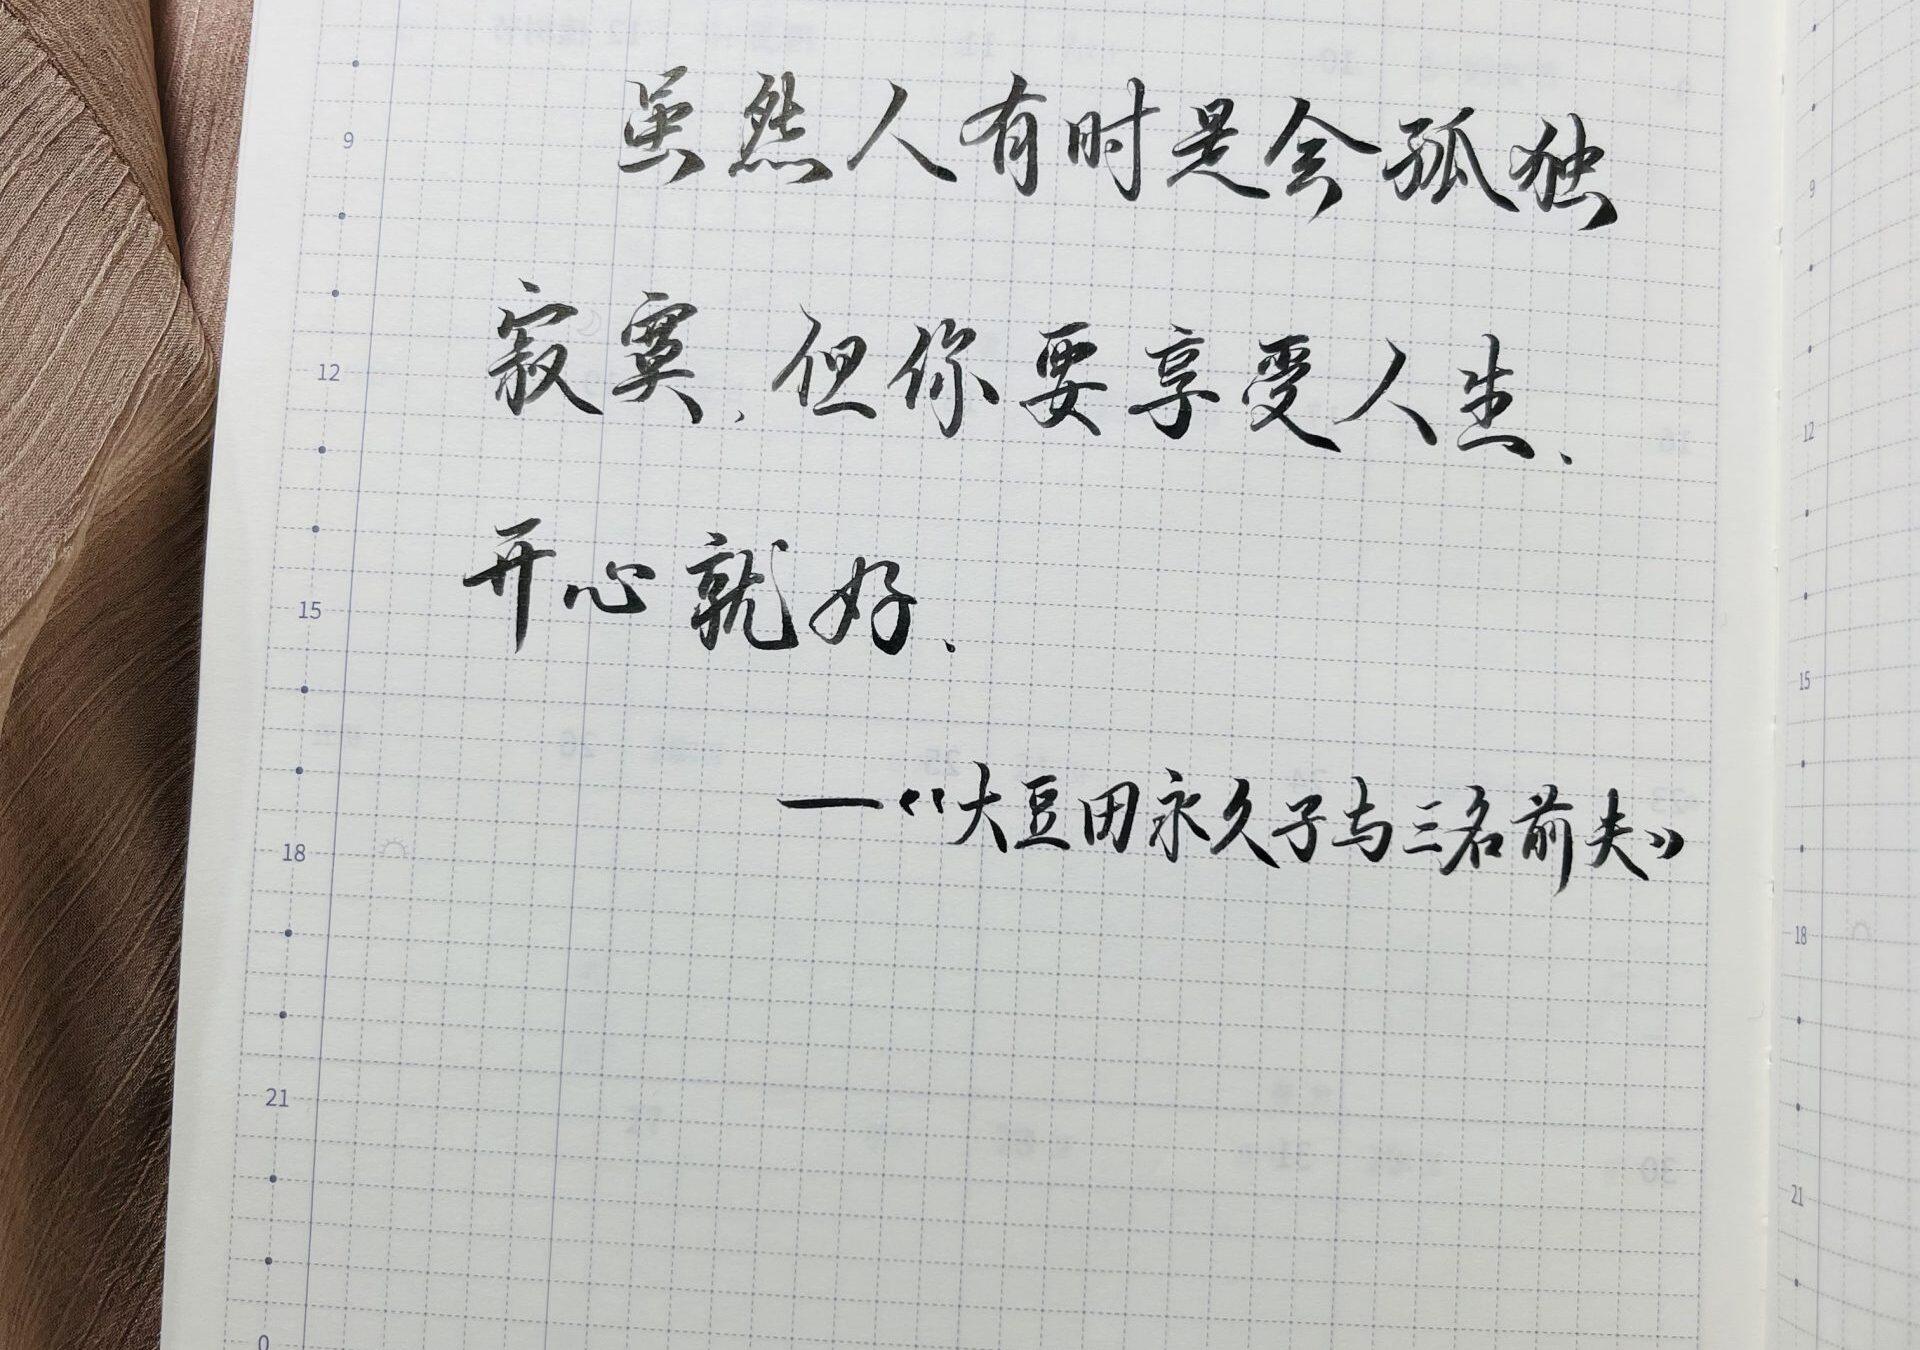 虽然人有时是会孤独
9
寂寞,但你要享受人生、
12
开心就好、
15
——《大豆田永久子与三名前夫》
18
21
0
9
12
15
18
21